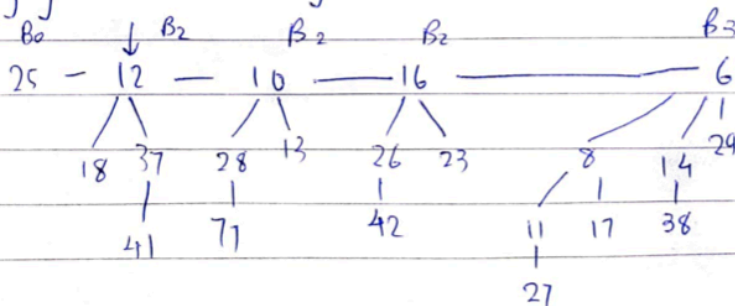 B0 B2 B2 B2 B3
25 — 12 — 10 — 16 — 6
18 37 28 13 26 23 8 14 29
41 71 42 11 17 38
27